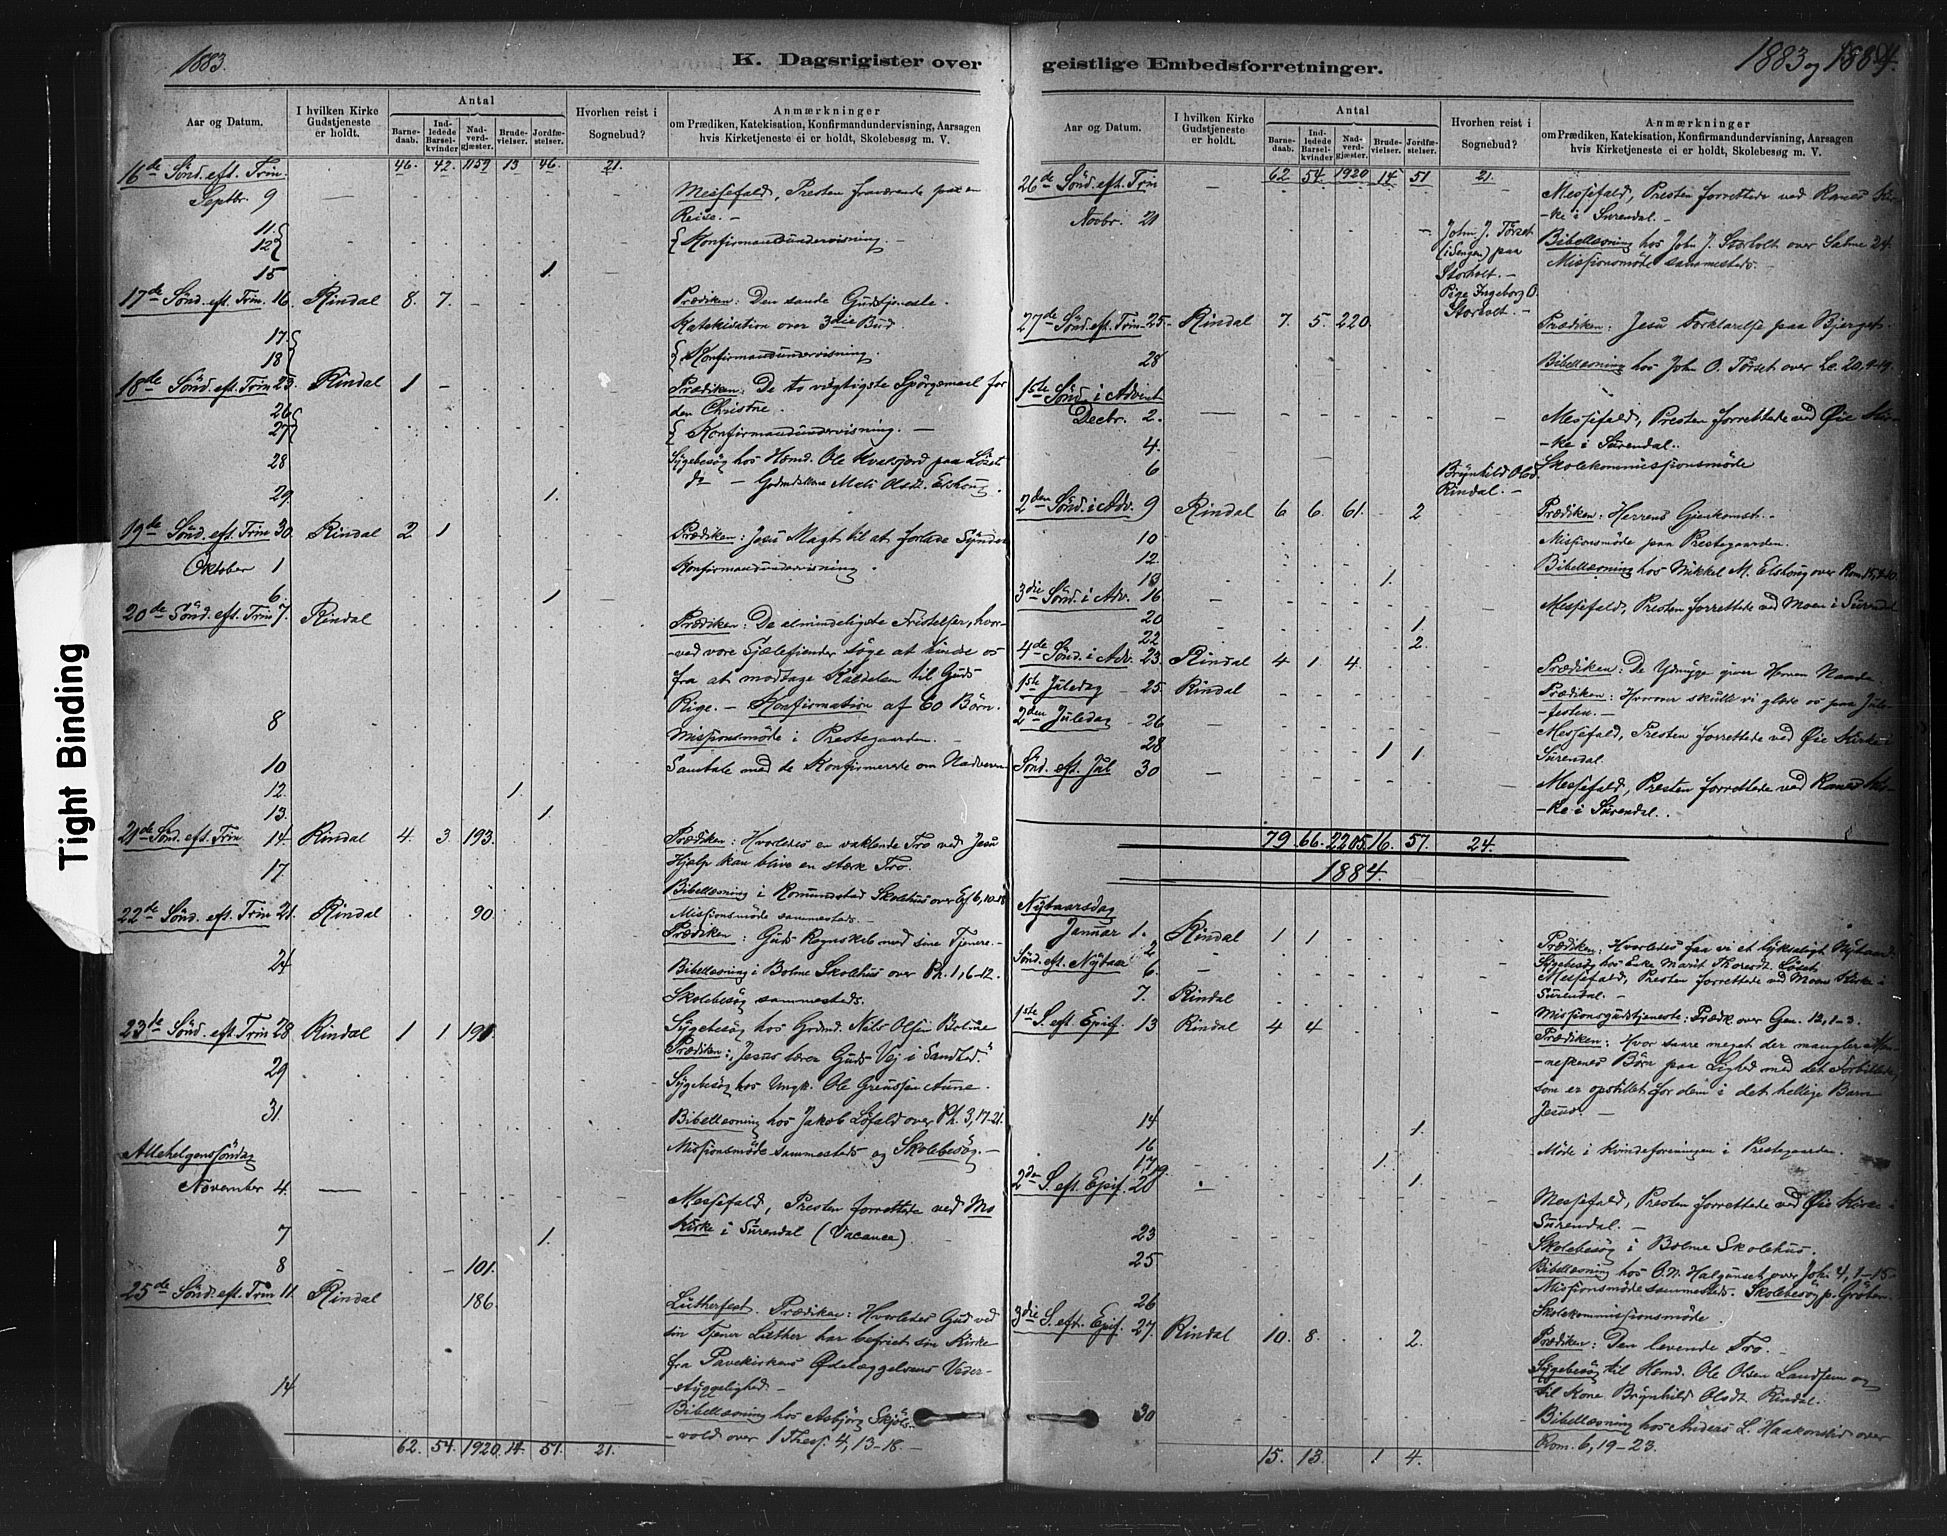 1883.
K. Dagsrigister over
Aar og Datum.
I hvilken Kirke
Gudstjeneste
er holdt.
Antal
Barne-
daab.
Ind-
ledede
Barsel-
kvinder
Nad-
verd-
gjæster.
Brude-
vielser.
Jordfæ-
stelser.
Hvorhen reist i
Sognebud?
Anmærkninger
om Prædiken, Katekisation, Konfirmandundervisning, Aarsagen
hvis Kirketjeneste ei er holdt, Skolebesøg m. V.
16de Sönd. eft. Trin. 46. 42. 1159 13 46. 21.
Septbr. 9 Messefald, Presten fraværende paa en
Reise. -
11.
12 Konfirmandundervisning. -
15 1.
17de Sönd. eft. Trin. 16. Rindal 8. 7. Prædiken: Den sande Gudstjeneste.
Katekisation over 3die Bud.
17.
18 Konfirmandundervisning.
18de Sönd. eft. Trin 23. Rindal 1 - Prædiken: De to vigtigste Spörgsmaal for
den Christne.
26.
27 Konfirmandundervisning. -
28 Sygebesög hos Hsmd. Ole
29 1.
19de Sönd. eft. Trin 30. Rindal 2 1 Prædiken: Jesu Magt til at forlade Synder
Oktober 1 Konfirmandundervisning.
6. 1
20de Sönd. eft. Trin 7. Rindal Prædiken: De almindeligste Fristelser, hvor-
-ved vore Sjælefiender söge at hindre os
fra at modtage Kaldelsen til Guds
Rige. - Konfirmation af 60 Börn.
8 Missionsmöde i Prestegaarden.
10 Samtale med de Konfirmerede om Nadveren
12. 1.
13. 1
21de Sönd. eft. Trin 14. Rindal 4. 3. 193. Prædiken: Hvorledes en vaklende Tro ved Jesu
Hjælp kan blive en stærk Tro.
17. Bibellæsning i Romundstad Skolehus over Ef. 6, 10-18
Missionsmöde sammesteds. -
22de Sönd. eft. Trin 21. Rindal 90. Prædiken: Guds Regnskab med sine Tjenere. -
24 Bibellæsning i Bolme Skolehus over Ph. 1, 6-12.
Skolebesög sammesteds.
23de Sönd. eft. Trin 28 Rindal 1 1 191. Sygebesög hos Grdmd. Nils Olsen Bolme
Prædiken: "Jesus lærer Guds Vej i Sandhed"
29 Sygebesög hos Ungk. Ole Aune.
31. Bibellæsning hos Jakob Löfald over Ph. 3, 17-21.
Missionsmöde sammesteds og Skolebesög. -
Allehelgenssöndag
November 4. Messefald, Presten forrettede ved
Kirke i Surendal (Vacance)
7 1.
8 101.
25de Sönd. eft. Trin 11. Rindal 186. Lutherfest. Prædiken: Hvorledes Gud ved
sin Tjener Luther har befriet sin Kirke
fra Pavekirkens Ödelæggelsens Veder-
-styggelighed -
14 Bibellæsning hos Asbjörg Skjöls-
-vold over 1 Thess. 4, 13-18. -
62. 54. 1920. 14. 51. 21.
1883 og 1884.
geistlige Embedsforretninger.
Aar og Datum.
I hvilken Kirke
Gudstjeneste
er holdt.
Antal
Barne-
daab.
Ind-
ledede
Barsel-
kvinder
Nad-
verd-
gjæster.
Brude-
vielser.
Jordfæ-
stelser.
Hvorhen reist i
Sognebud?
Anmærkninger
om Prædiken, Katekisation, Konfirmandundervisning, Aarsagen
hvis Kirketjeneste ei er holdt, Skolebesøg m. V.
26de Sönd. eft. Trin 62 54. 1920 14 51 21. Messefald, Presten forrettede ved Ranes Kir-
-ke i Surendal. -
Novbr. John J. Törset
paa
Storholt. - Bibellæsning hos John J. Storholt over Salme 24.
Missionsmöde sammesteds. -
Pige Ingeborg O.
Storholt. -
27de Sönd. eft. Trin 25. Rindal 7. 5. 220. Prædiken: Jesu Forklarelse paa Bjerget.
28 Bibellæsning hos John O. Törset over Lc. 20, 9-19.
1ste Sönd. i Advent
Decbr. 2. Messefald, Presten forrettede ved Öie Kir-
-ke i Surendal.
4. Skolekommissionsmöde
6 Brynhild Olsd.
Rindal. -
2den Sönd. i Adv. 9 Rindal 6 6. 61. 2 Prædiken: Herrens Gjenkomst. -
10 Missionsmöde paa Prestegaarden.
12. Bibellæsning hos Mikkel M. Elshoug over Rom. 15, 4-10.
13 1.
3die Sönd. i Adv. 16 Messefald, Presten forrettede ved Moen i Surendal
20 1.
22 2.
4de Sönd. i Adv. 23. Rindal 4 1 4. Prædiken: De Ydmyge giver Herren Naade.
1ste Juledag 25. Rindal Prædiken: Hvorover skulle vi glæde os paa Jule-
-festen. -
2den Juledag 26 Messefald, Presten forrettede ved Öie Kirke i
Surendal.
28 1 1.
Sönd. eft. Jul 30 Messefald, Presten forrettede ved Ranes Kir-
-ke i Surendal.
79. 66. 2205. 16. 57. 24.
1884.
Nytaarsdag
Januar 1. Rindal 1 1 Prædiken: Hvorledes faa vi et lyksaligt Nytaar?
2 Sygebesög hos Enke Marit Thoresdt. Löset
Sönd. eft. Nytaar 6. Messefald, Presten forrettede ved Moen Kirke i
Surendal. -
7. Rindal Missionsgudstjeneste: Prædk over Gen. 12, 1-3.
1ste S. eft. Epif. 13 Rindal 4 4 Prædiken: Hvor saare meget der mangler Men-
-neskenes Börn paa Lighed med det Forbillede
som er opstillet for dem i det hellige Barn
Jesus -
14 1.
16 Möde i Kvindeforeningen i Prestegaarden.
17 1.
19 1.
2den S. eft. Epif. 20 Messefald, Presten forrettede ved Öie Kirke i
Surendal. -
23 Skolebesög i Bolme Skolehus.
25 Bibellæsning hos O. N. Halgunset over Joh. 4, 1-15.
Missionsmöde sammesteds. Skolebesög p. Gröten.
26 Skolekommissionsmöde.
3die S. eft. Epif. 27. Rindal 10. 8. 2. Prædiken: Den levende Tro. -
Sygebesög til Hsmd. Ole Olsen Landsem og
til Kone Brynhild Olsdt. Rindal.
30 Bibellæsning hos Anders L. Haakonstad over
Rom. 6, 19-23.
15. 13. 1 4.
Tight Binding